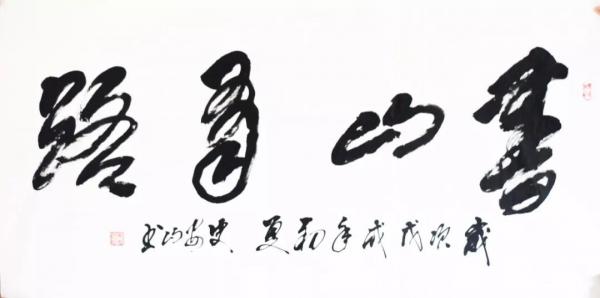 書山有路
歲次戊戌年初夏 史山书